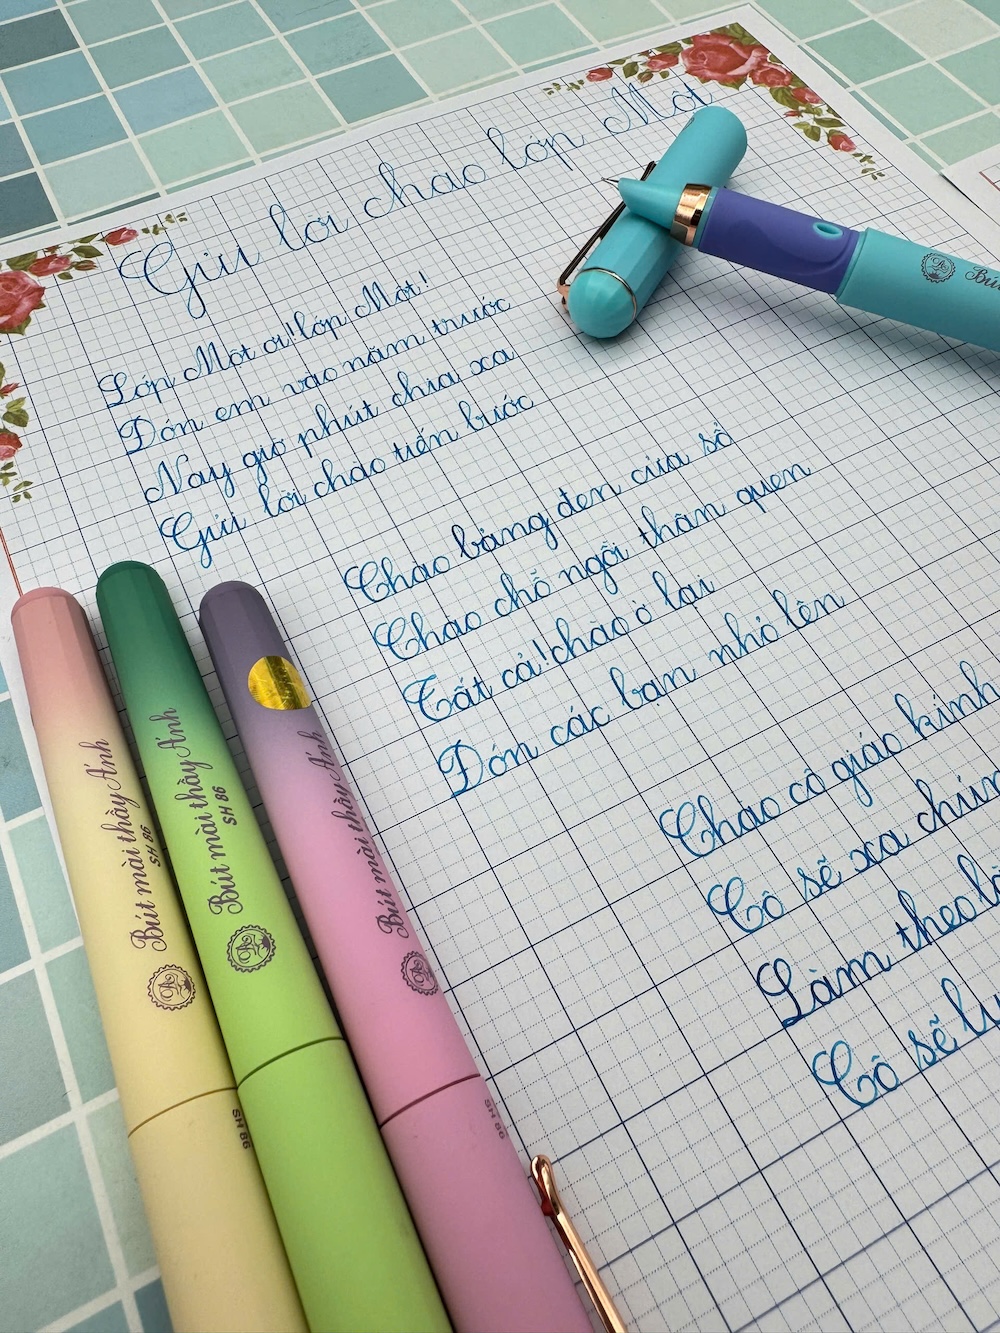 Gửi lời chào lớp Một
Lớp Một ơi! lớp Một!
Đón em vào năm trước
Nay giờ phút chia xa
Gửi lời chào tiến bước
Chào bảng đen cửa sổ
Chào chỗ ngồi thân quen
Tất cả! chào ở lại
Đón các bạn nhỏ lên
Chào cô giáo kính
Cô sẽ xa
Làm theo
Cô sẽ
Bút mài thầy Ánh
SH 86
SH 86
Bút mài thầy Ánh
SH 86
Bút mài thầy Ánh
SH 86